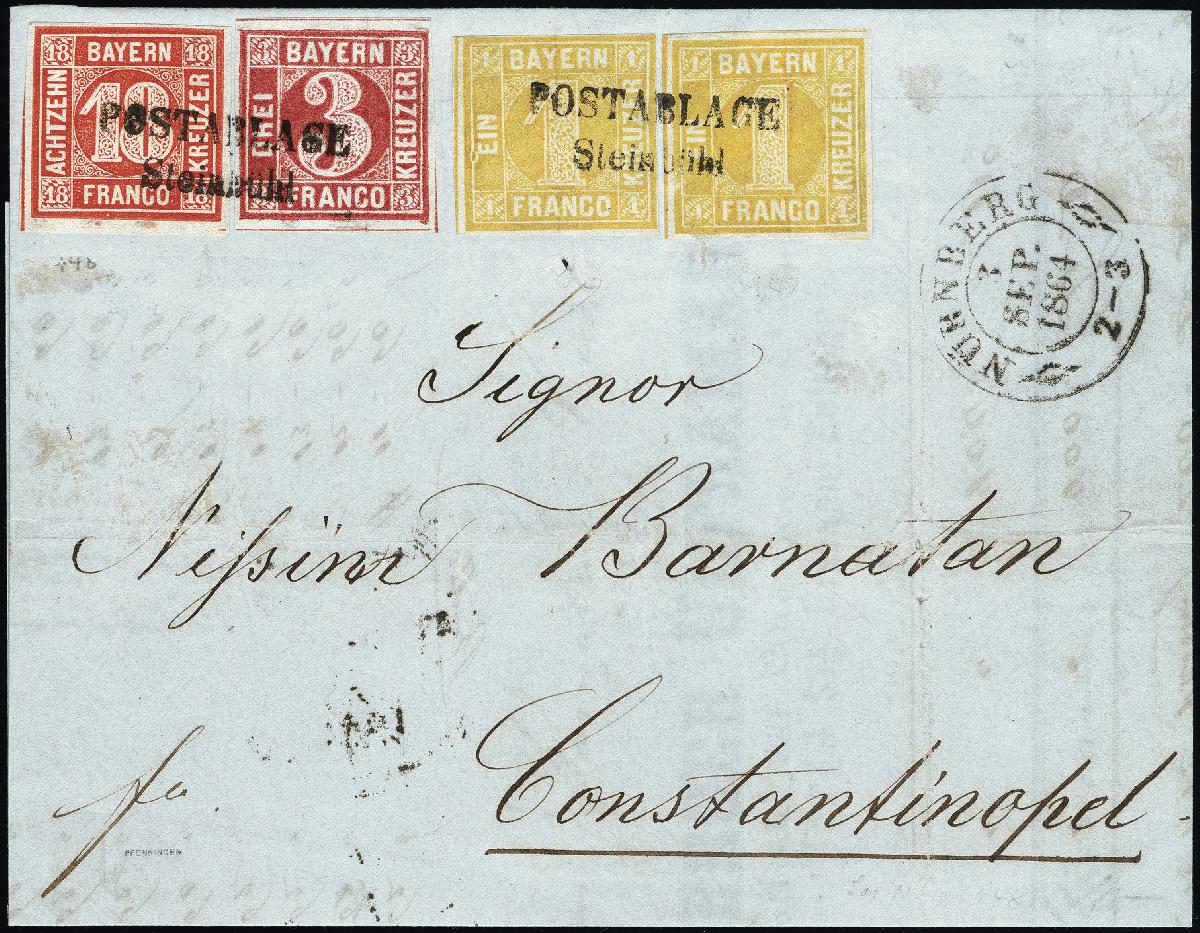 18 BAYERN 18
ACHTZEHN 18 KREUZER
18 FRANCO 18
3 BAYERN 3
DREI 3 KREUZER
3 FRANCO 3
1 BAYERN 1
EIN 1 KREUZER
1 FRANCO 1
1 BAYERN 1
EIN 1 KREUZER
1 FRANCO 1
POSTABLAGE
Steinbühl
POSTABLAGE
Steinbühl
NÜRNBERG
SEP.
1864
2-3
448
Signor
Nißim Barnatan
Constantinopel
fco.
PFENNINGER